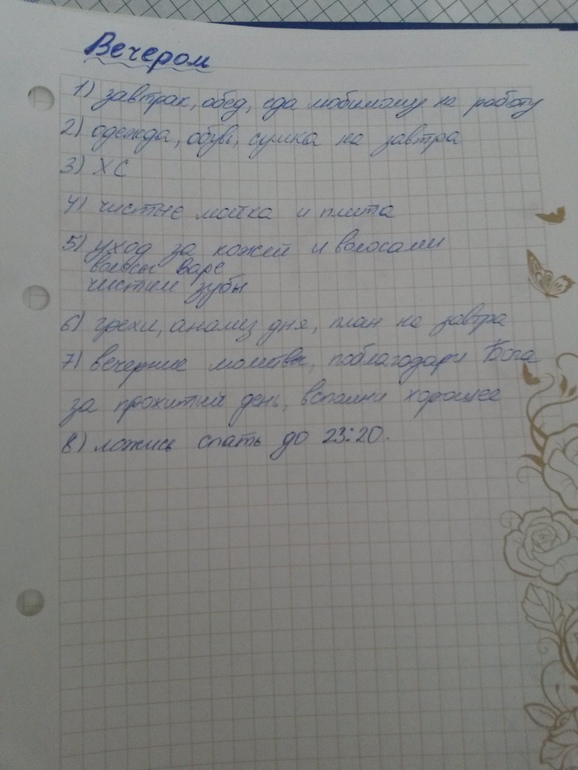 Вечером
1) завтрак, обед, еда любимому на работу
2) одежда, обувь, сумка на завтра
3) ХС
4) чистые мойка и плита
5) уход за кожей и волосами
волосы Варе
чистим зубы
6) грехи, анализ дня, план на завтра
7) вечерние молитвы, поблагодари Бога
за прожитый день, вспомни хорошее
8) ложись спать до 23:20.